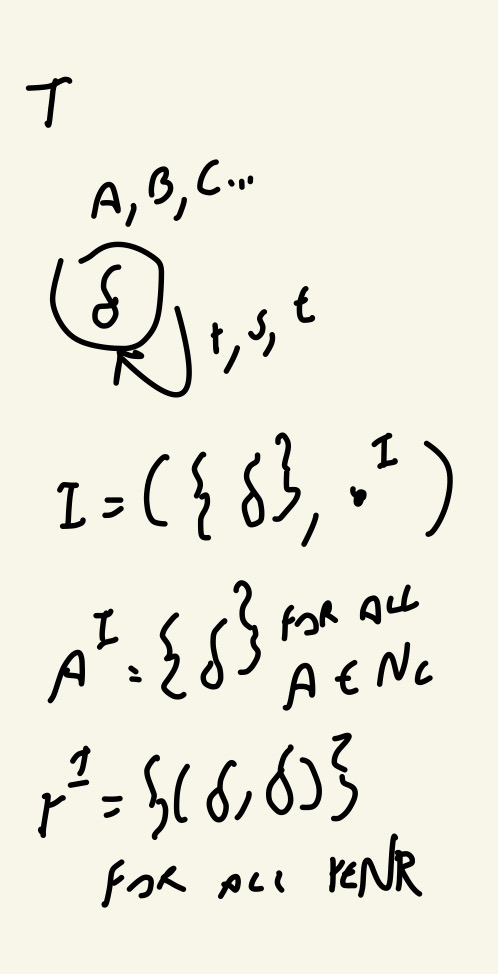 T
A, B, C...
δ
r, s, t
I = ({δ}, •^I)
A^I = {δ} FOR ALL
A ∈ NC
r^I = {(δ, δ)}
FOR ALL r∈NR